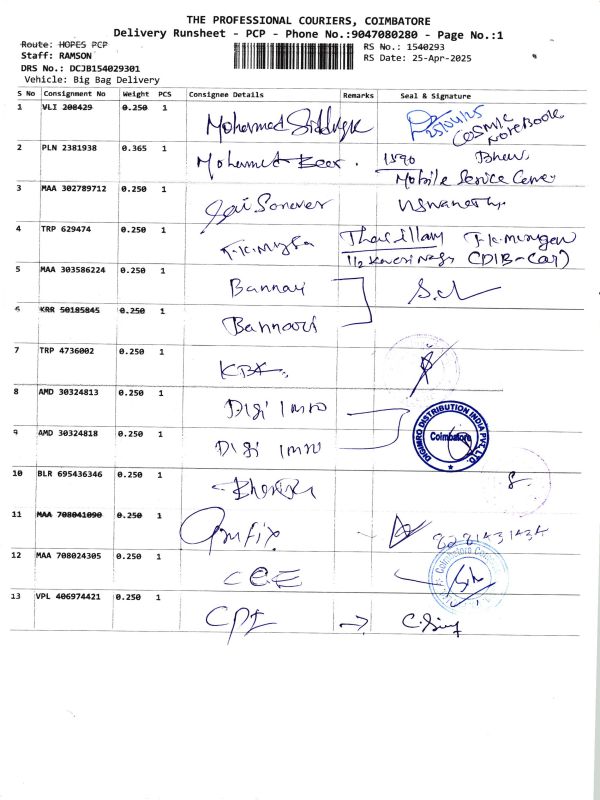 THE PROFESSIONAL COURIERS, COIMBATORE
Delivery Runsheet - PCP - Phone No.:9047080280 - Page No.:1
Route: HOPES PCP
RS No.: 1540293
Staff: RAMSON
RS Date: 25-Apr-2025
DRS No.: DCJB154029301
Vehicle: Big Bag Delivery
S No Consignment No Weight PCS Consignee Details Remarks Seal & Signature
1 VLI 208429 0.250 1 Mohammed 25/04/25
COSMIC
NOTEBOOK
2 PLN 2381938 0.365 1 Mohamed 1590
Mobile Service Center
3 MAA 302789712 0.250 1
4 TRP 629474 0.250 1 Thai illam T.K. Murugan
5 MAA 303586224 0.250 1 Bannari
6 KRR 50185845 0.250 1 Bannari
7 TRP 4736002 0.250 1
8 AMD 30324813 0.250 1 DIGI IMRO
DIGIMRO DISTRIBUTION INDIA PVT. LTD.
Coimbatore
9 AMD 30324818 0.250 1 DIGI IMRO
10 BLR 695436346 0.250 1
11 MAA 708041090 0.250 1 8281431434
12 MAA 708024305 0.250 1 CEE
13 VPL 406974421 0.250 1 CPI